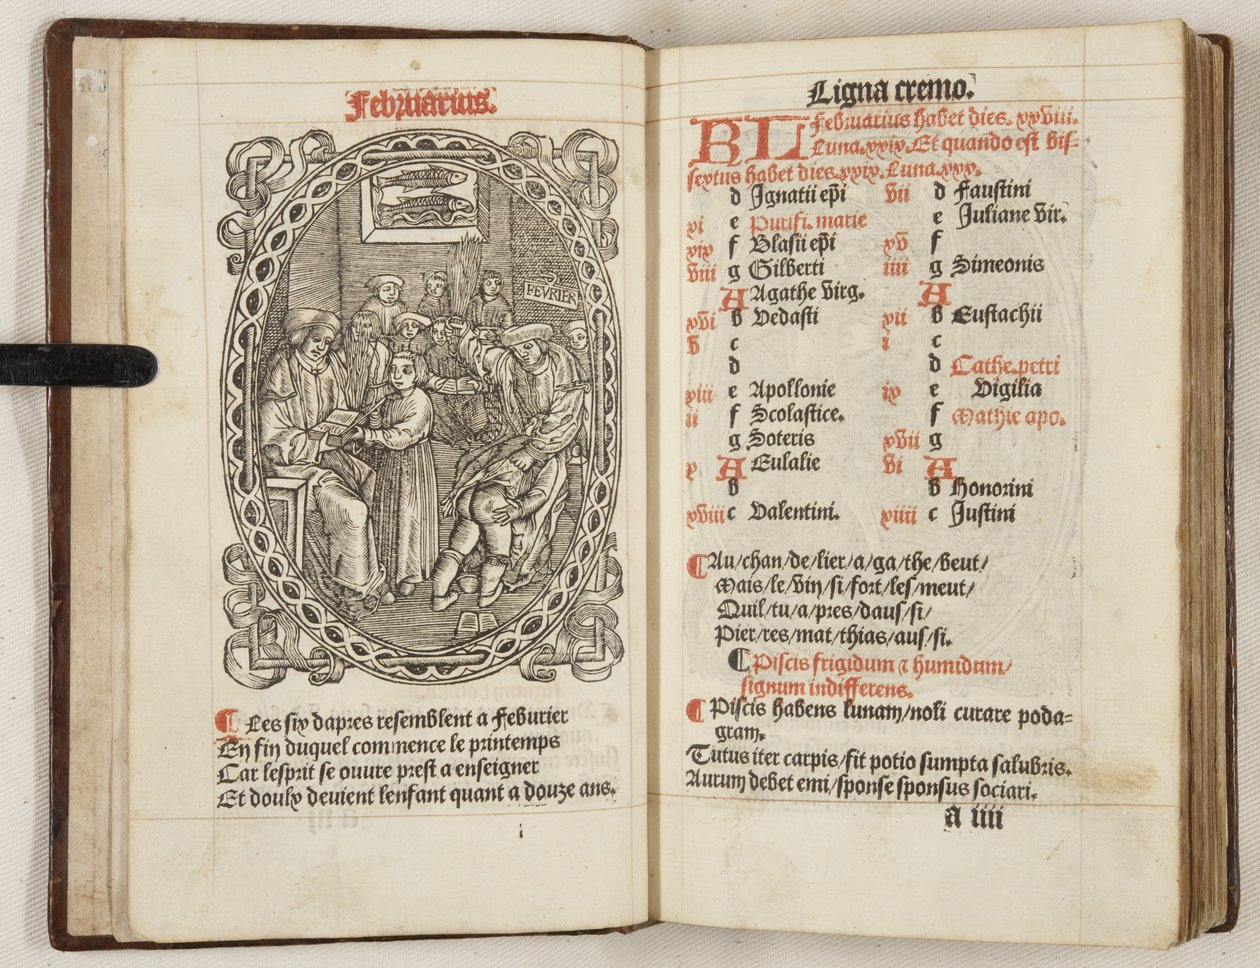 Februarius.
FEVRIER
Les six dapres resemblent a Feburier
En fin duquel commence le printemps
Car lesprit se ouvre prest a enseigner
Et doulx devient lenfant quant a douze ans.
Ligna cremo.
KL Februarius habet dies. xxviii.
Luna. xxix. Et quando est bis-
sextus habet dies. xxix. Luna. xxx.
d Ignatii ep̄i
xi e Purifi. marie
xix f Blasii ep̄i
viii g Gilberti
A Agathe virg.
xvi b Vedasti
v c
d
xiii e Apollonie
ii f Scolastice.
g Soteris
x A Eulalie
b
xviii c Valentini.
vii d Faustini
e Juliane vir.
xv f
iiii g Simeonis
A
xii b Eustachii
i c
d Cathe. petri
ix e Vigilia
f Mathie apo.
xvii g
vi A
b Honorini
xiiii c Justini
Au/chan/de/lier/a/ga/the/beut/
Mais/le/vin/si/fort/les/meut/
Quil/tu/a/pres/daus/si/
Pier/res/mat/thias/aus/si.
Piscis frigidum ⁊ humidum/
signum indifferens.
Piscis habens lunam/noli curare poda=
gram.
Tutus iter carpis/fit potio sumpta salubris.
Aurum debet emi/sponse sponsus sociari.
a iiii